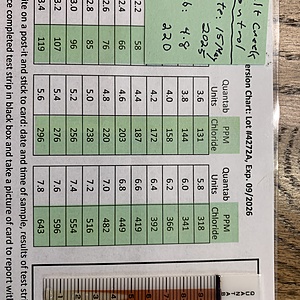 ersion Chart: Lot #4272A, Exp. 09/2026
Quantab Units PPM Chloride Quantab Units PPM Chloride
3.6 131 5.8 318
3.8 144 6.0 341
4.0 158 6.2 366
4.2 172 6.4 392
2.2 58 4.4 187 6.6 419
2.4 66 4.6 203 6.8 449
2.6 76 4.8 220 7.0 482
2.8 85 5.0 238 7.2 516
3.0 96 5.2 256 7.4 554
3.2 107 5.4 276 7.6 596
3.4 119 5.6 296 7.8 643
15/May
2025
4.8
220
te on a post-it and stick to card: date and time of sample, results of test str
ce completed test strip in black box and take a picture of card to report with
QUANTAB